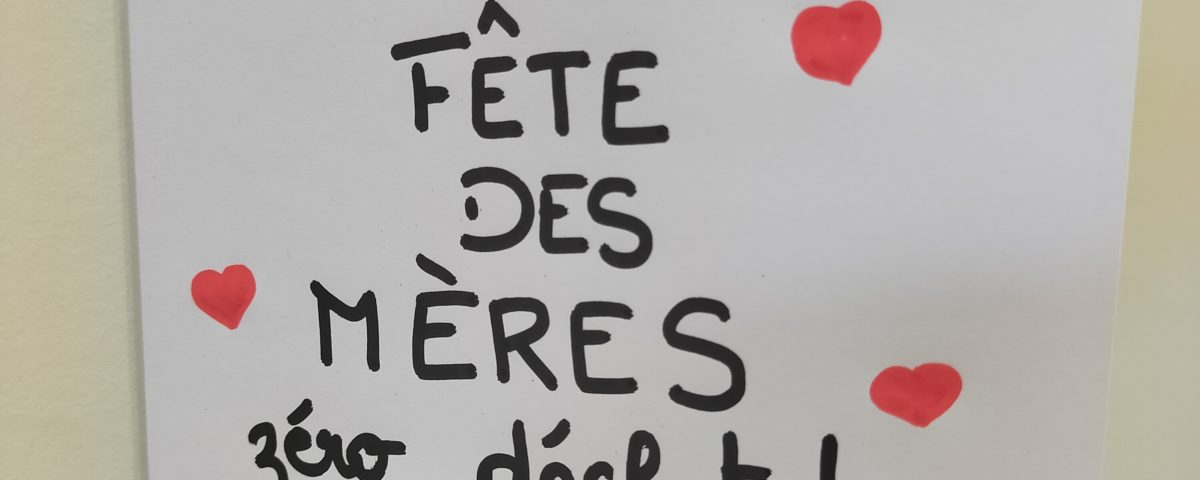 FÊTE
DES
MÈRES
zéro déchet !